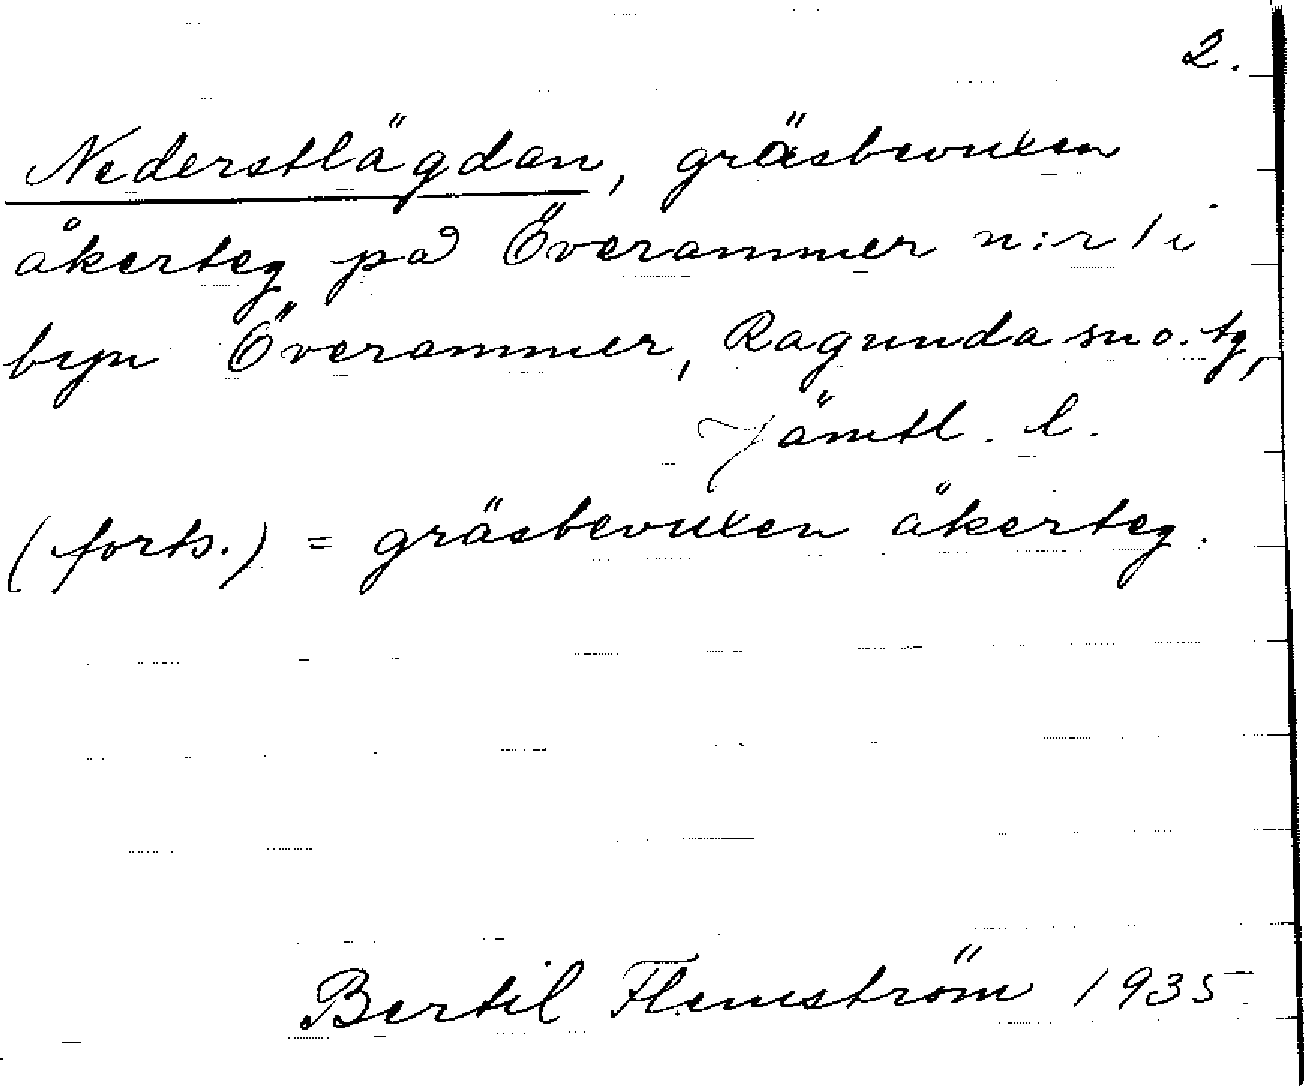 2.
Nederstlägdan, gräsbevuxen
åkerteg på Överammer n:r 1 i
byn Överammer, Ragunda sn o. tg,
Jämtl. l.
(forts.) = gräsbevuxen åkerteg.
Bertil Flemström 1935